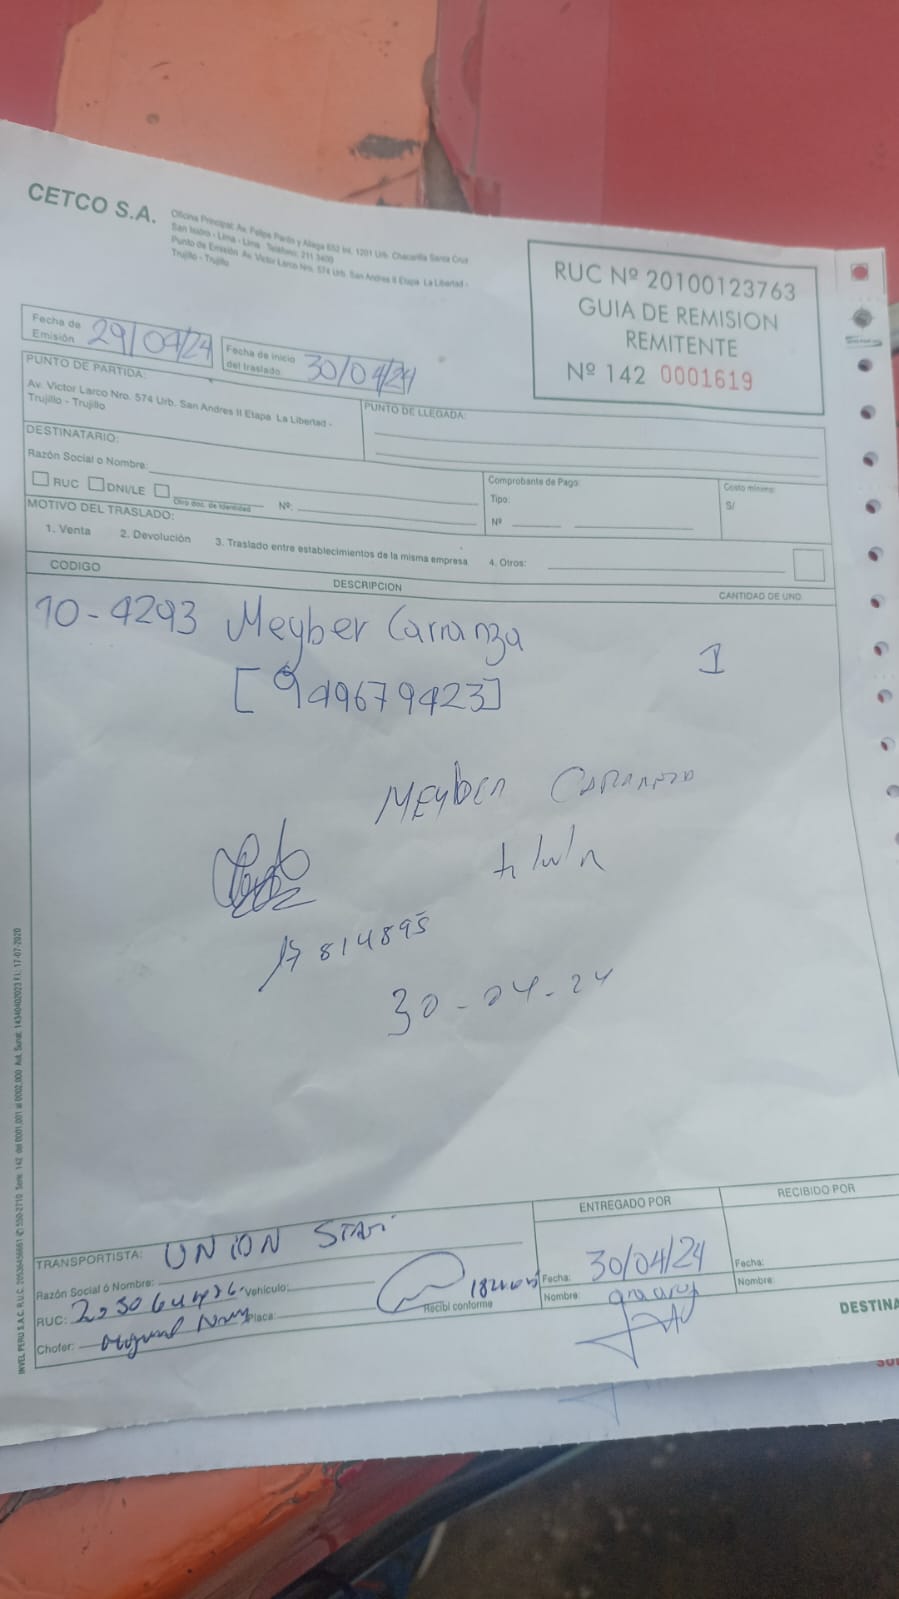 CETCO S.A.
Oficina Principal: Av. Felipe Pardo y Aliaga 652 Int. 1201 Urb. Chacarilla Santa Cruz
San Isidro - Lima - Lima Teléfono: 211 3400
Punto de Emisión: Av. Victor Larco Nro. 574 Urb. San Andres II Etapa La Libertad -
Trujillo - Trujillo
RUC Nº 20100123763
GUIA DE REMISION
REMITENTE
Nº 142 0001619
Fecha de Emisión 29/04/24
Fecha de inicio del traslado 30/04/24
PUNTO DE PARTIDA:
Av. Victor Larco Nro. 574 Urb. San Andres II Etapa La Libertad -
Trujillo - Trujillo
PUNTO DE LLEGADA:
DESTINATARIO:
Razón Social o Nombre:
RUC DNI/LE Otro doc. de Identidad Nº:
Comprobante de Pago:
Tipo:
Nº
Costo mínimo:
S/
MOTIVO DEL TRASLADO:
1. Venta 2. Devolución 3. Traslado entre establecimientos de la misma empresa 4. Otros:
CODIGO DESCRIPCION CANTIDAD DE UND
10-4293 Meyber Carranza 1
[949679423]
Meyber Carranza
814895
30-04-24
INVEL PERU S.A.C. R.U.C.
TRANSPORTISTA: UNION
Razón Social ó Nombre:
RUC: Vehículo:
Chofer: Placa:
Recibí conforme
ENTREGADO POR
Fecha: 30/04/24
Nombre:
RECIBIDO POR
Fecha:
Nombre:
DESTINA